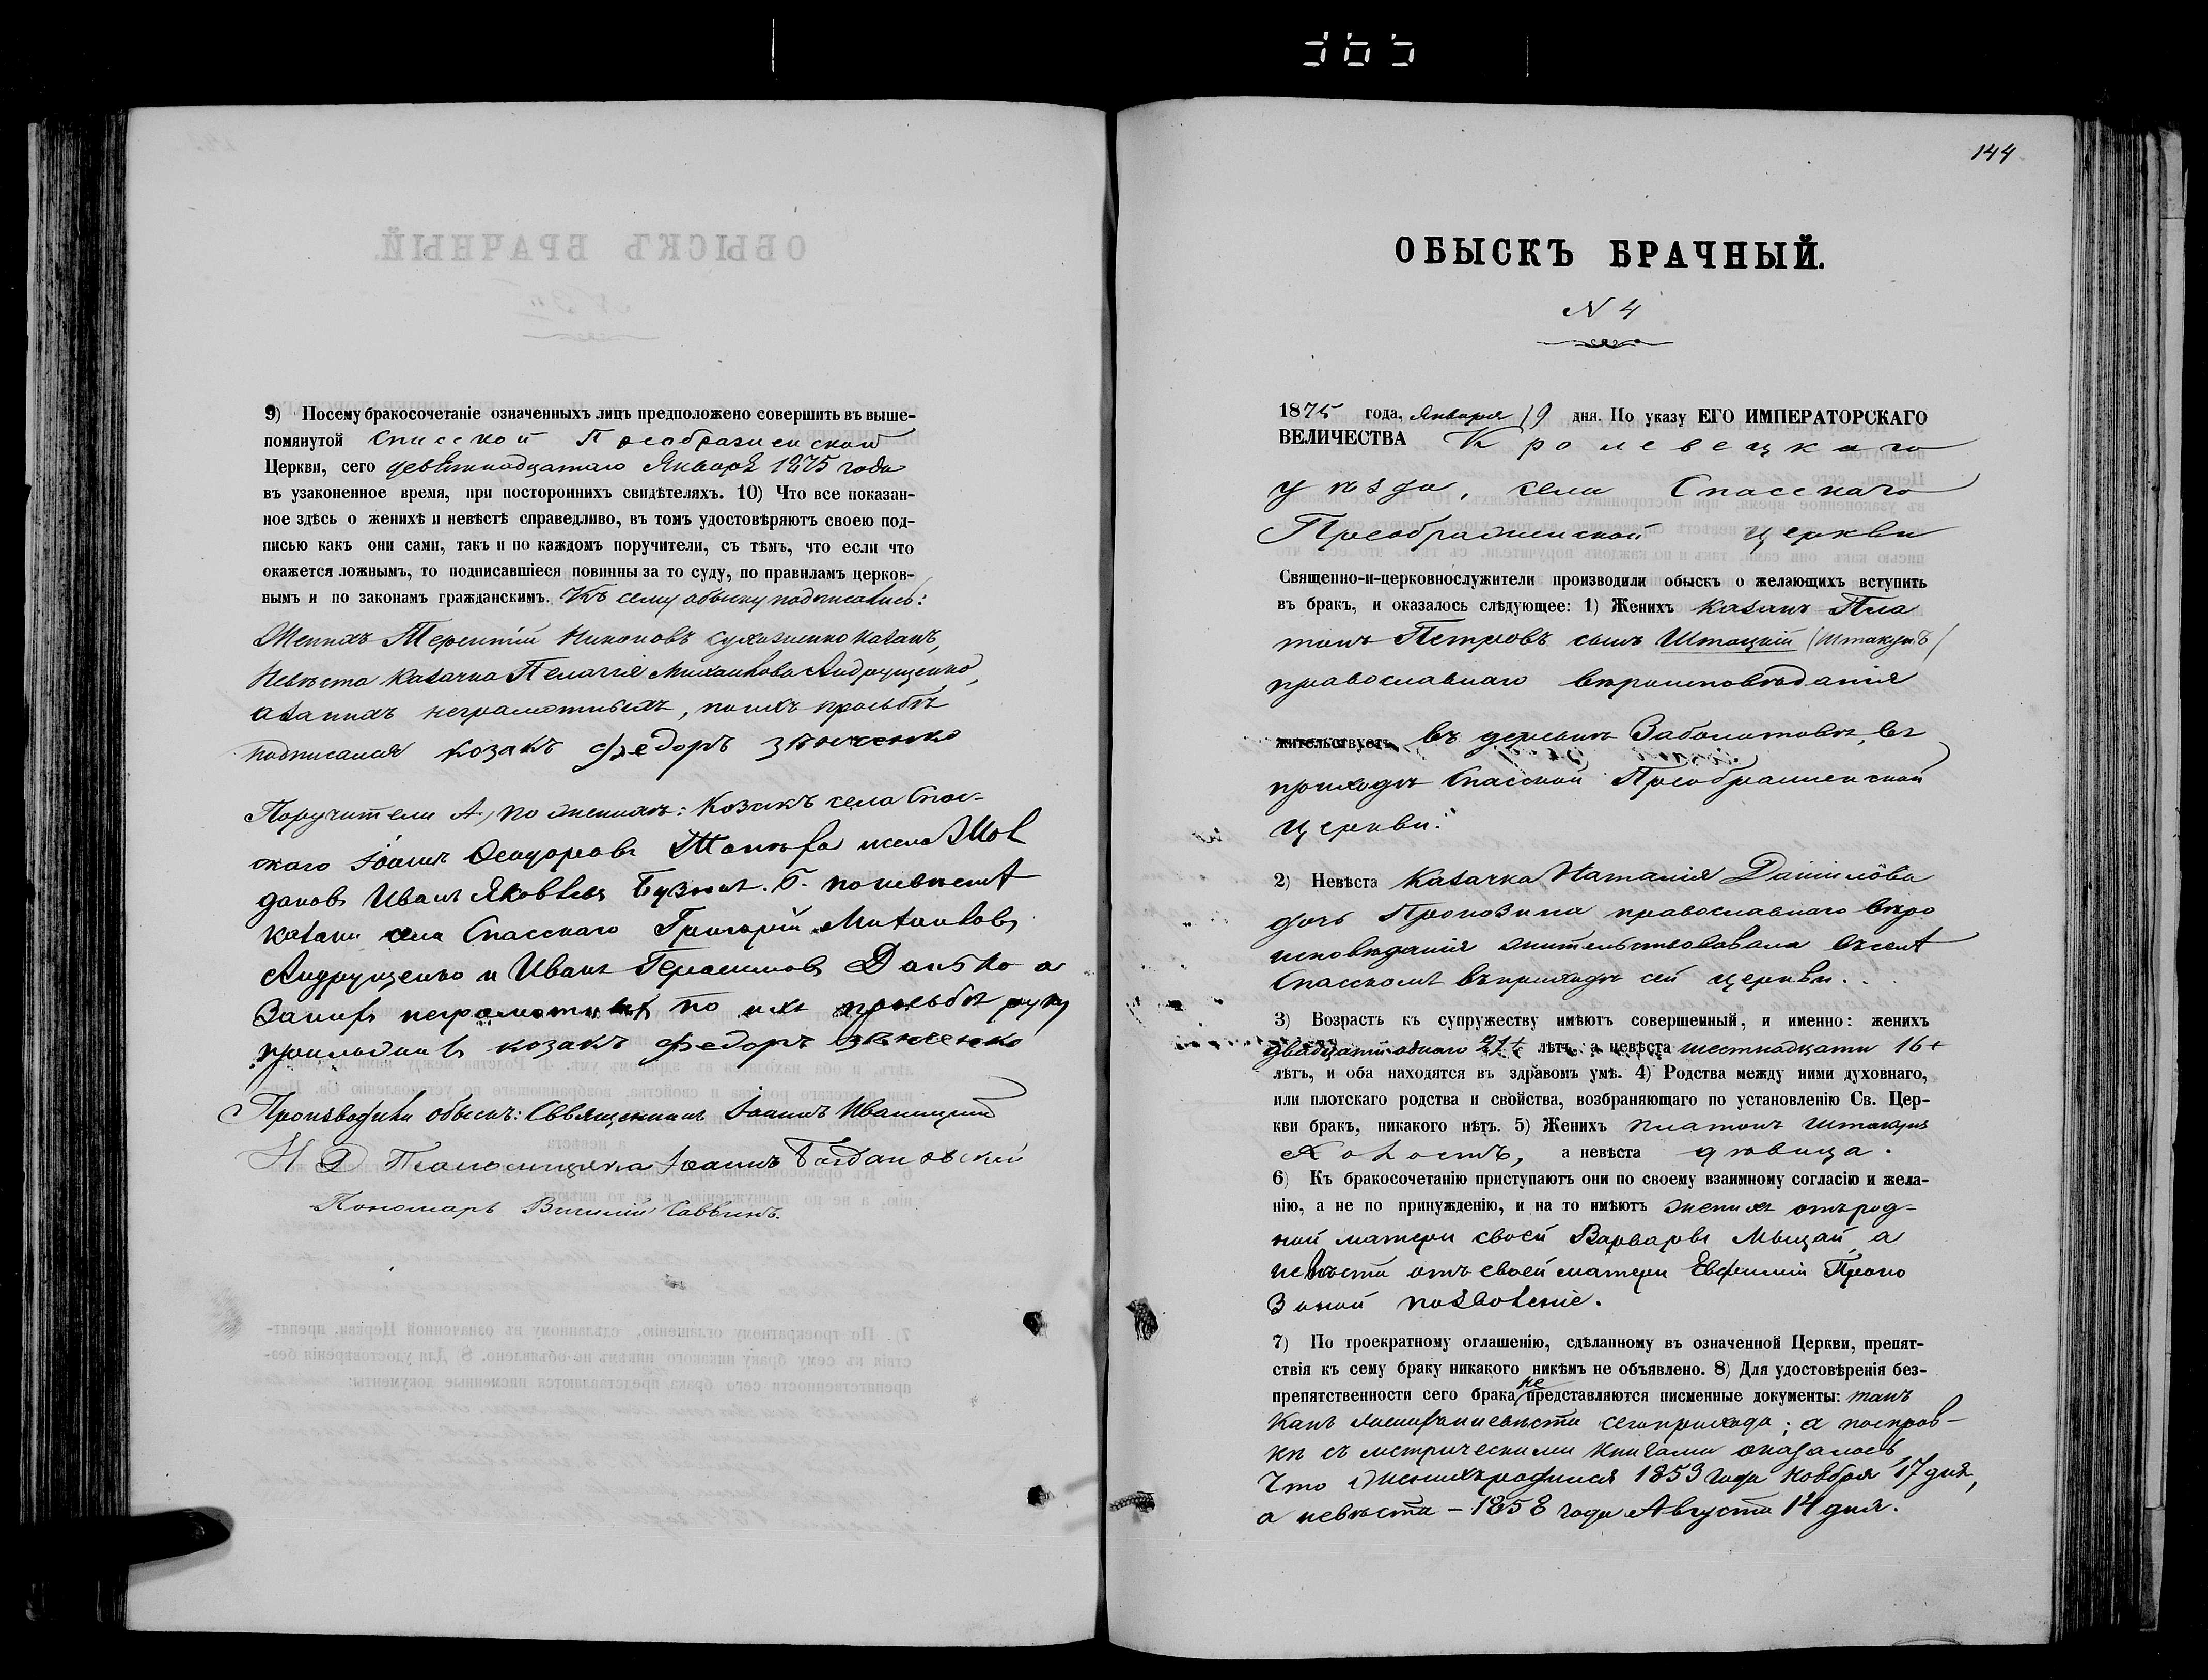 9) Посему бракосочетаніе означенныхъ лицъ предположено совершить въ выше-
помянутой Спасской Преображенской
Церкви, сего девятнадцатаго Января 1875 года
въ узаконенное время, при постороннихъ свидѣтеляхъ. 10) Что все показан-
ное здѣсь о женихѣ и невѣстѣ справедливо, въ томъ удостовѣряютъ своею под-
писью какъ они сами, такъ и по каждомъ поручители, съ тѣмъ, что если что
окажется ложнымъ, то подписавшіеся повинны за то суду, по правиламъ церков-
нымъ и по законамъ гражданскимъ. Къ сему обыску подписались:
Женихъ Терентій Никоновъ Сухозненко казакъ,
Невѣста казачка Пелагія Михаилова Андрущенко,
а за нихъ неграмотныхъ, по ихъ просьбѣ
подписался козакъ Федоръ
Поручители А, по женихѣ: Козакъ села Спас-
скаго Іоаннъ Феодоровъ
Иванъ Яковлевъ Б. по невѣстѣ
казаки села Спасскаго Григорій Михаиловъ
Андрущенко и Иванъ Герасимовъ Данько а
за нихъ неграмотныхъ по ихъ просьбѣ руку
приложилъ козакъ Федоръ
Производили обыскъ: Священникъ Іоаннъ Иваницкій
И Д Псаломщика Іоаннъ Богдановскій
Пономарь Василій Саввинъ.
144
ОБЫСКЪ БРАЧНЫЙ.
N 4
1875 года, Января 19 дня. По указу ЕГО ИМПЕРАТОРСКАГО
ВЕЛИЧЕСТВА Кролевецкаго
уѣзда, села Спасскаго
Преображенской церкви
Священно-и-церковнослужители производили обыскъ о желающихъ вступить
въ бракъ, и оказалось слѣдующее: 1) Женихъ казакъ Пла
тонъ Петровъ сынъ Штацкій (Штакунъ)
православнаго вѣроисповѣданія
жительствуетъ въ деревнѣ Заболотовѣ, въ
приходѣ Спасской Преображенской
церкви.
2) Невѣста казачка Наталія Даніилова
дочь Прокозина православнаго вѣро
исповѣданія жительствовала въ селѣ
Спасскомъ въ приходѣ сей церкви.
3) Возрастъ къ супружеству имѣютъ совершенный, и именно: женихъ
двадцати однаго 21+ лѣтъ, а невѣста шестнадцати 16+
лѣтъ, и оба находятся въ здравомъ умѣ. 4) Родства между ними духовнаго,
или плотскаго родства и свойства, возбраняющаго по установленію Св. Цер-
кви бракъ, никакого нѣтъ. 5) Женихъ Платонъ Штакунъ
холостъ, а невѣста дѣвица.
6) Къ бракосочетанію приступаютъ они по своему взаимному согласію и жела-
нію, а не по принужденію, и на то имѣютъ женихъ отъ род-
ной матери своей Варвары Мыцай, а
невѣста отъ своей матери Евфиміи Проко
зиной позволеніе.
7) По троекратному оглашенію, сдѣланному въ означенной Церкви, препят-
ствія къ сему браку никакого никѣмъ не объявлено. 8) Для удостовѣренія без-
препятственности сего брака не представляются писменные документы: такъ
какъ женихъ и невѣста сего прихода; а по справ-
кѣ съ метрическими книгами оказалось
что женихъ родился 1853 года Ноября 17 дня,
а невѣста – 1858 года Августа 14 дня.